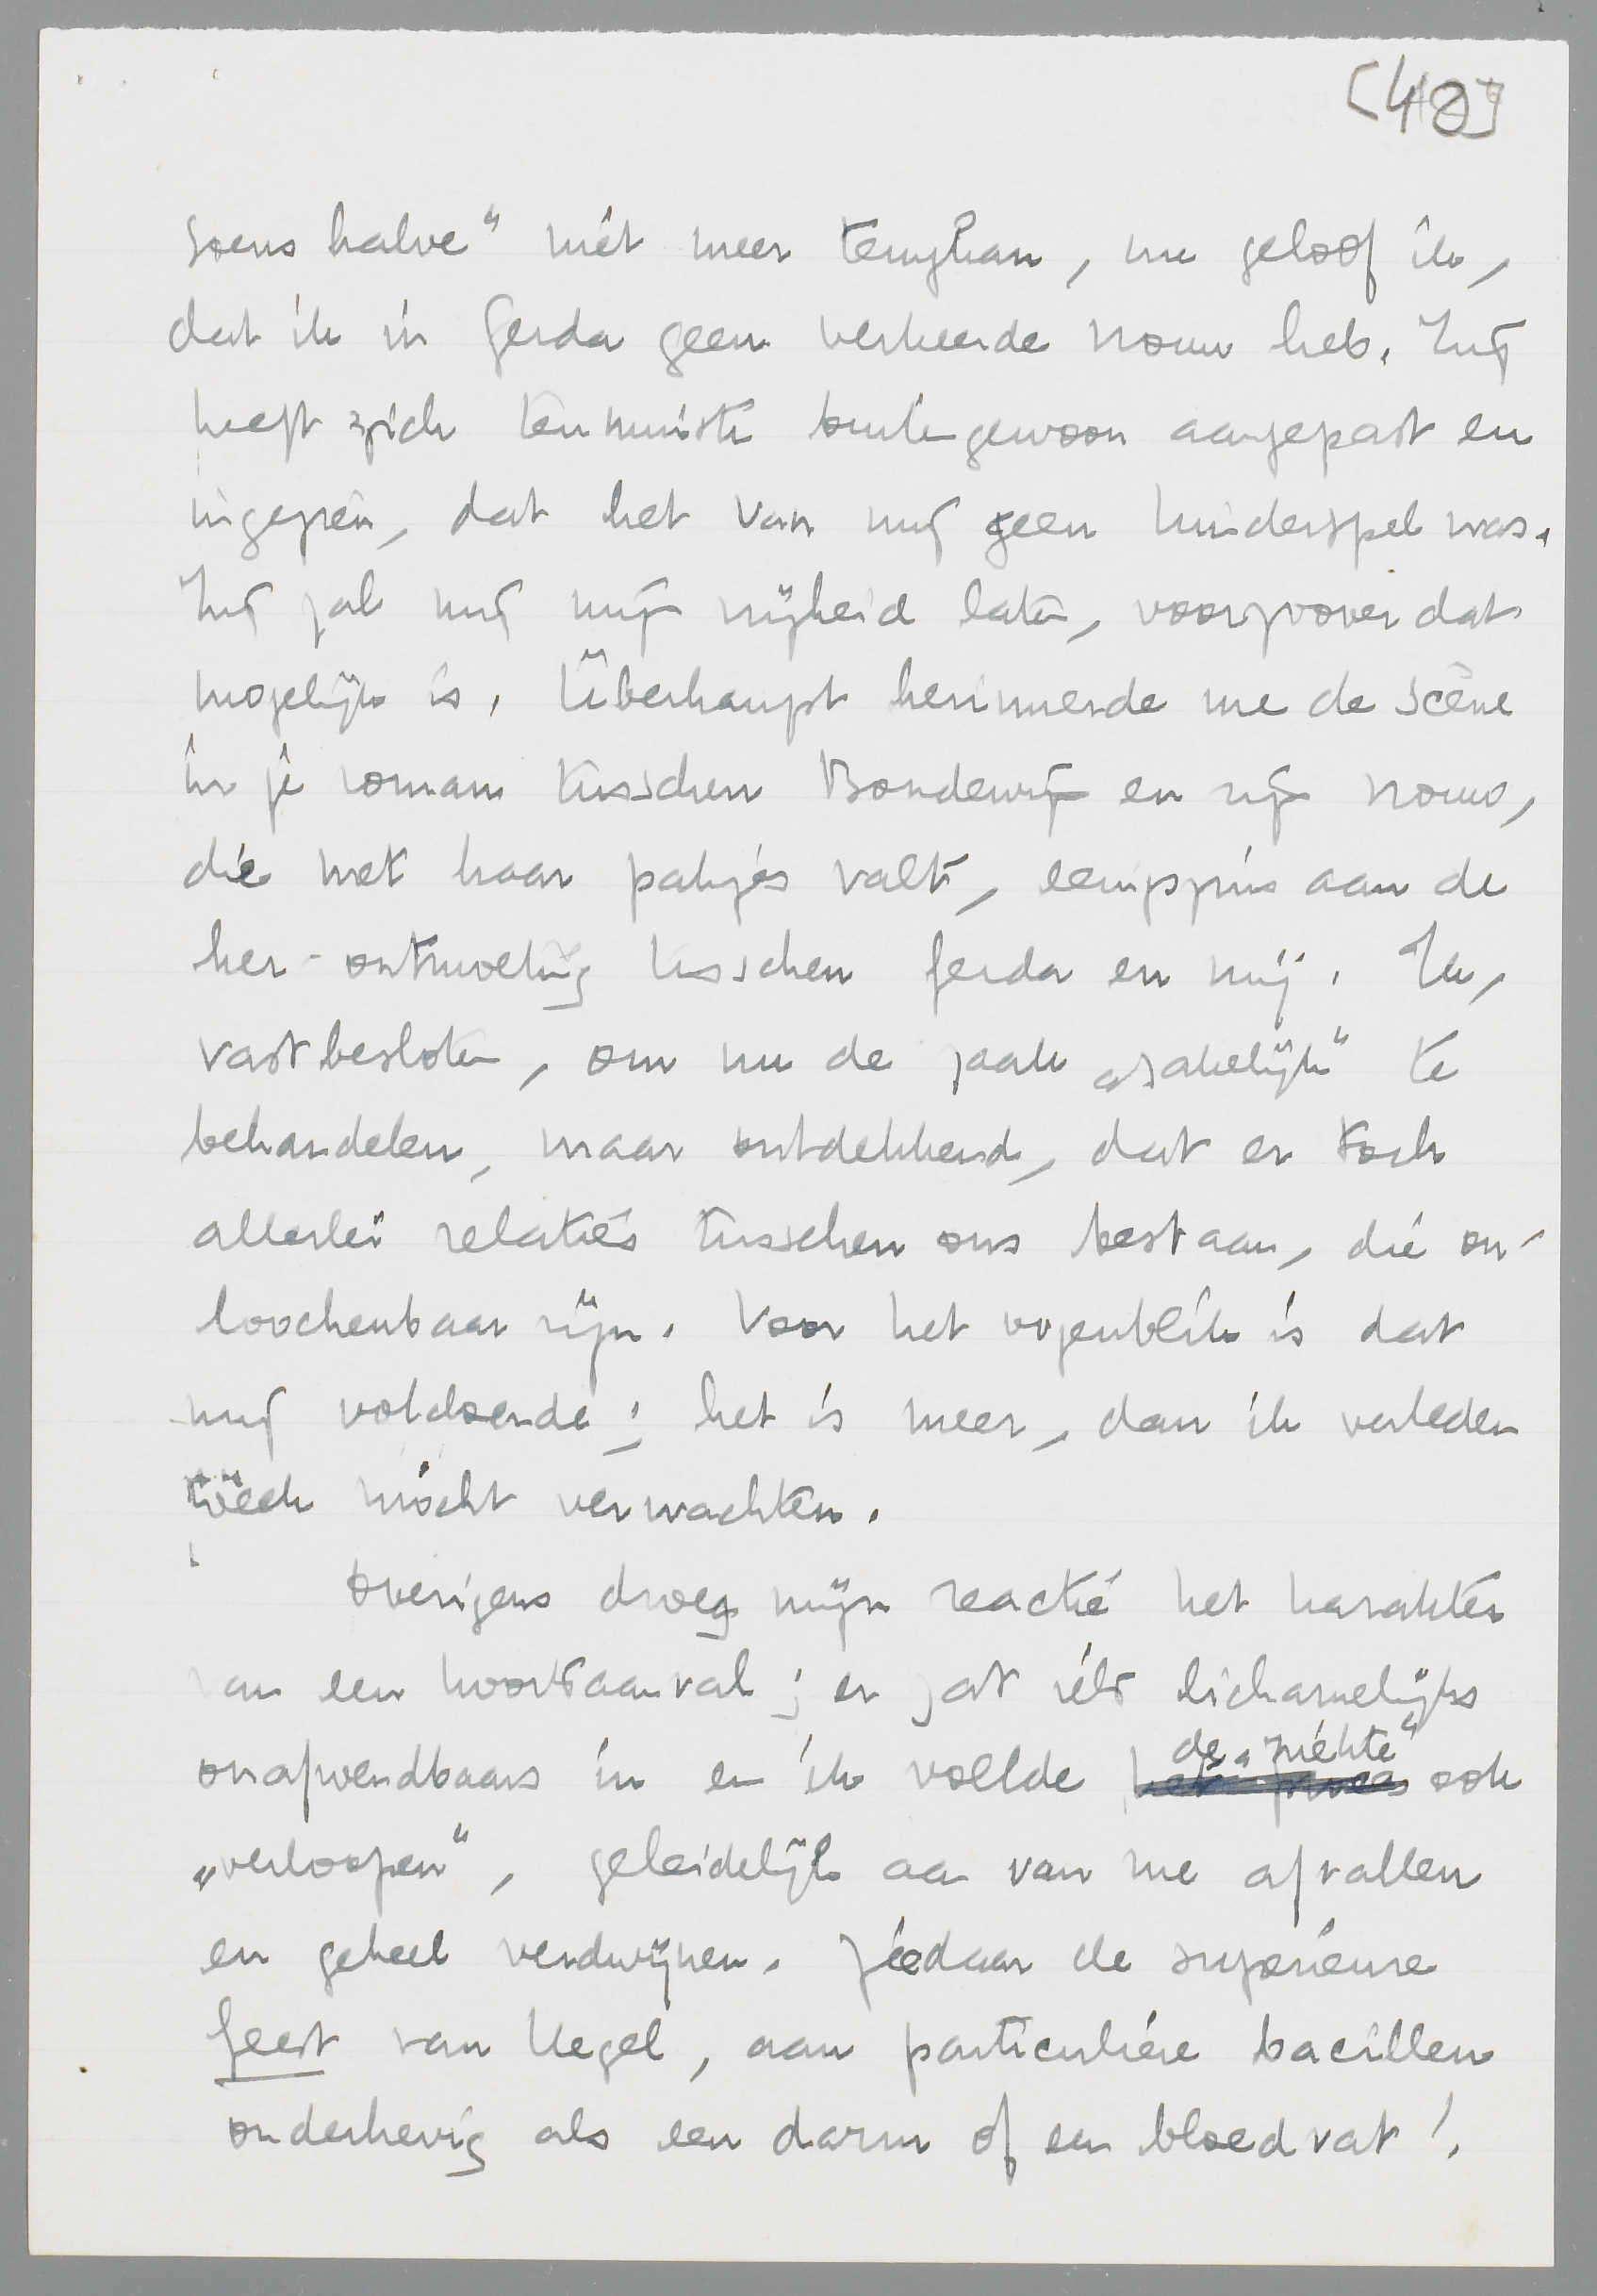 [48]
soens halve" niet meer terughan, nu geloof ik,
dat ik in Gerda geen verkeerde vrouw heb. Zij
heeft zich tenminste buitengewoon aangepast en
ingezien, dat het van mij geen kinderspel was.
Zij zal mij mijn vrijheid laten, voorzoover dat
mogelijk is. Überhaupt herinnerde me de scène
in je roman tusschen Boudewijn en zijn vrouw,
die met haar pakjes valt, eenigszins aan de
her-ontmoeting tusschen Gerda en mij. Ik,
vastbesloten, om nu de zaak „zakelijk" te
behandelen, maar ontdekkend, dat er toch
allerlei relaties tusschen ons bestaan, die on-
loochenbaar zijn. Voor het oogenblik is dat
mij voldoende; het is meer, dan ik verleden
week mocht verwachten.
Overigens droeg mijn reactie het karakter
van een koortsaanval; er zat iets lichamelijks
onafwendbaars in en ik voelde de „ziekte" ook
„verloopen", geleidelijk aan van me afvallen
en geheel verdwijnen. Ziedaar de superieure
Geest van Hegel, aan particuliere bacillen
onderhevig als een darm of een bloedvat!